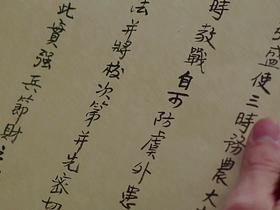 盛使三時務農大
時教戰自可防虞外患
法并將校次第并先密切
此實強兵節財